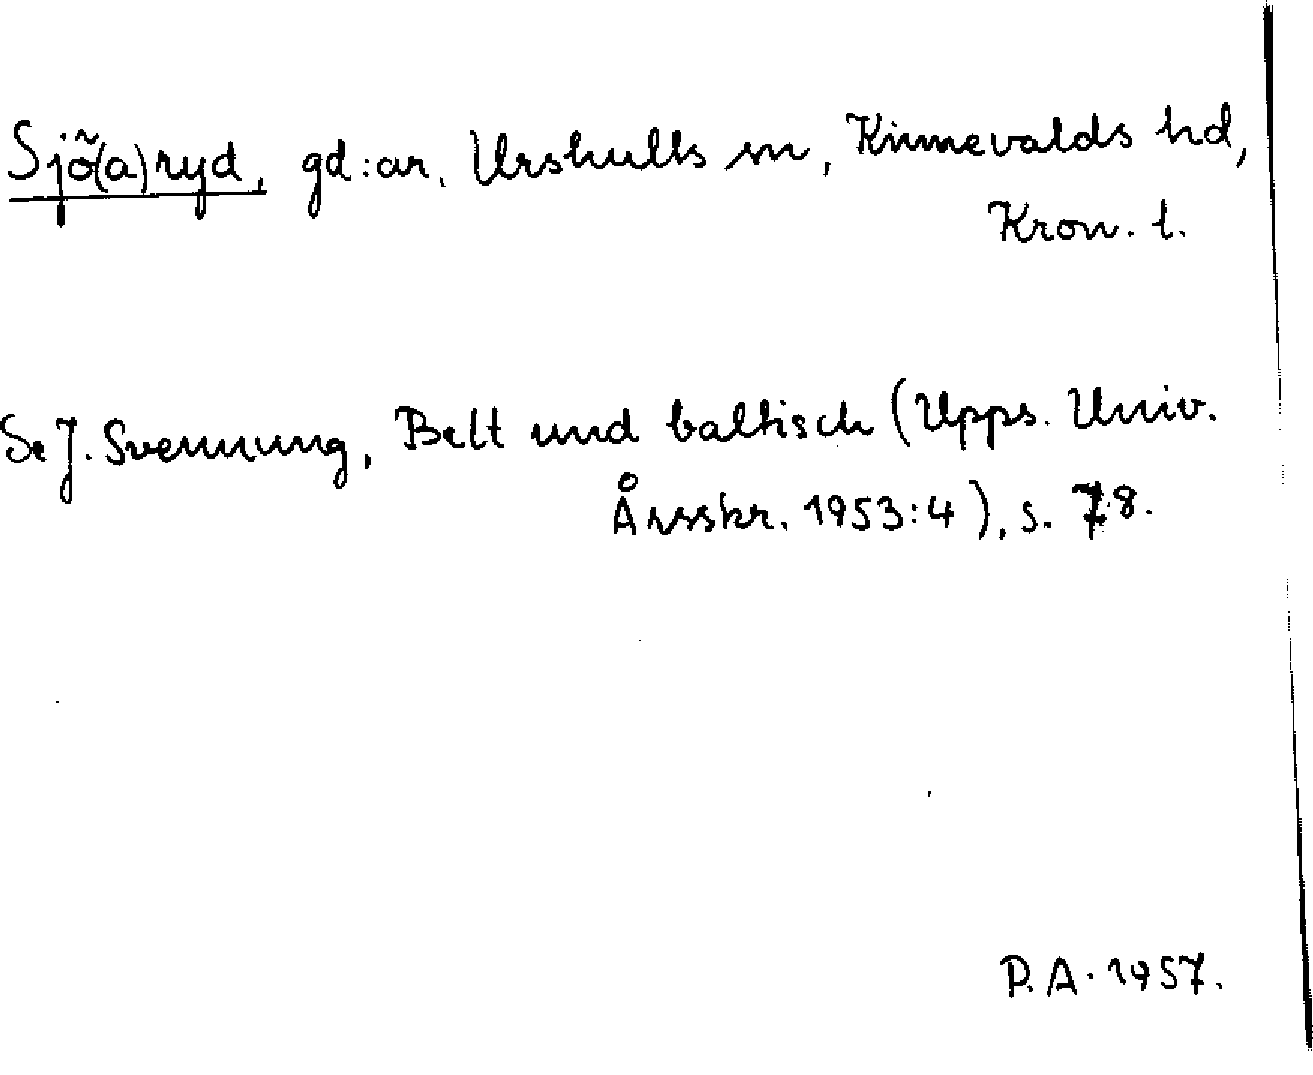 Sjö(a)ryd, gd:ar, Urshults sn, Kinnevalds hd,
Kron. l.
Se J. Svennung, Belt und baltisch (Upps. Univ.
Årsskr. 1953:4), s. 78.
P.A. 1957.